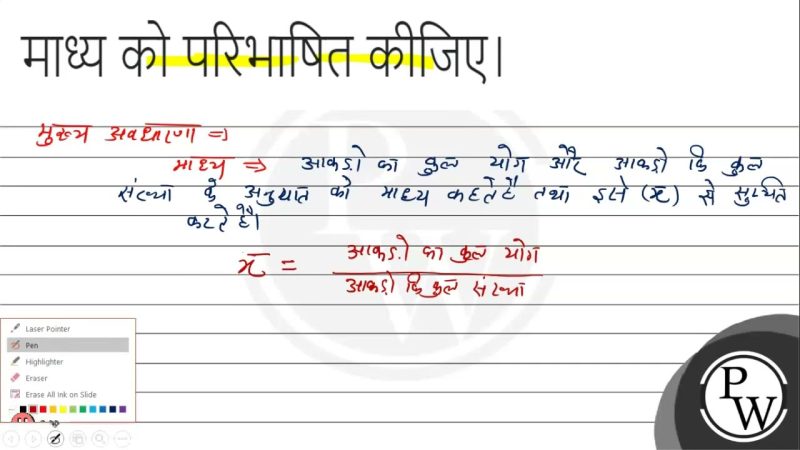 माध्य को परिभाषित कीजिए।
मुख्य अवधारणा ⇒
माध्य ⇒ आकड़ो का कुल योग और आकड़ो कि कुल
संख्या के अनुपात को माध्य कहते है तथा इसे (x̄) से सुचित
करते है।
x̄ = आकड़ो का कुल योग
आकड़ो कि कुल संख्या
Laser Pointer
Pen
Highlighter
Eraser
Erase All Ink on Slide
P
W
PW